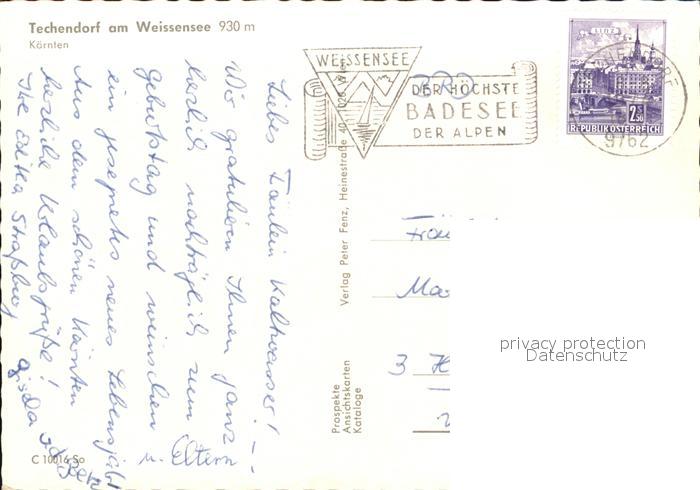 Techendorf am Weissensee 930 m
Kärnten
WEISSENSEE
DER HÖCHSTE
BADESEE
DER ALPEN
LINZ
2.50
REPUBLIK ÖSTERREICH
9762
Liebes Fräulein Kaltwasser!
Wir gratulieren Ihnen ganz
herzlich nachträglich zum
Geburtstag und wünschen
ein gesegnetes neues Lebensjahr
Aus dem schönen Kärnten
herzliche Urlaubsgrüße!
Ihre Edika Straßburg
u. Eltern
Verlag Peter Fenz, Heinestraße 40, 1020 Wien
Prospekte
Ansichtskarten
Kataloge
Fräu
Ma
3 H
C 10016 So
privacy protection
Datenschutz